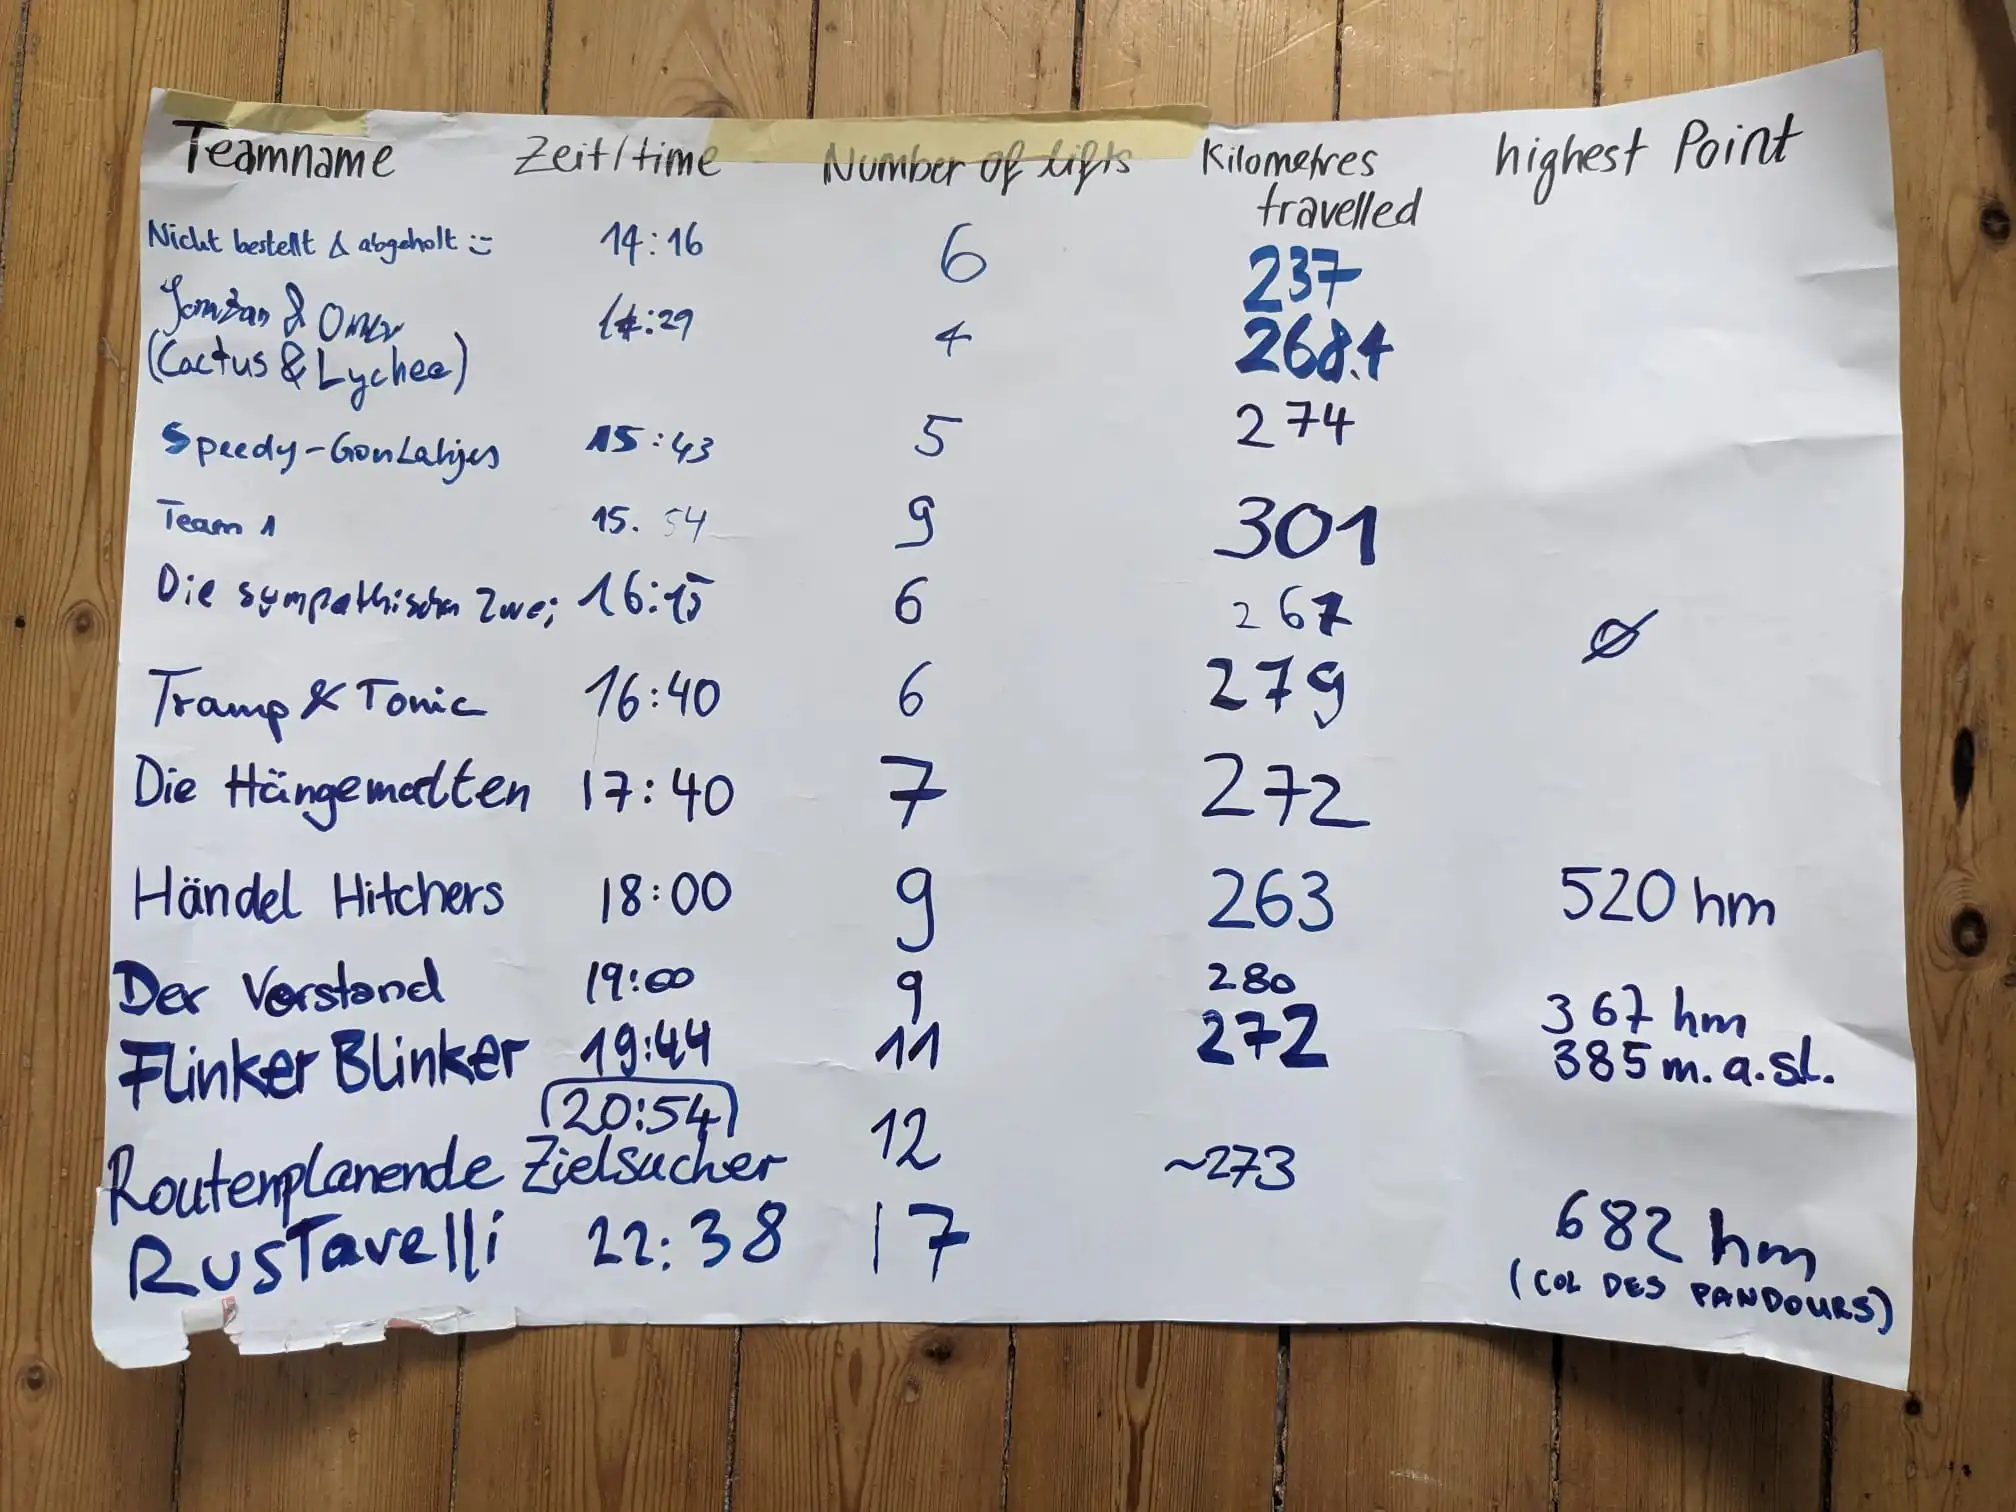 Teamname Zeit/time Number of lifts Kilometres travelled highest Point
Nicht bestellt & abgeholt :) 14:16 6 237
& Omer 14:29 4 268.4
(Cactus & Lychee)
Speedy-GonLahjes 15:43 5 274
Team 1 15. 54 9 301
Die sympathischen Zwei 16:15 6 267 Ø
Tramp & Tonic 16:40 6 279
Die Hängematten 17:40 7 272
Händel Hitchers 18:00 9 263 520 hm
Der Vorstand 19:00 9 280 367 hm
Flinker Blinker 19:44 11 272 385 m.a.sl.
(20:54)
Routenplanende Zielsucher 12 ~273
RusTavelli 22:38 17 682 hm
(COL DES PANDOURS)